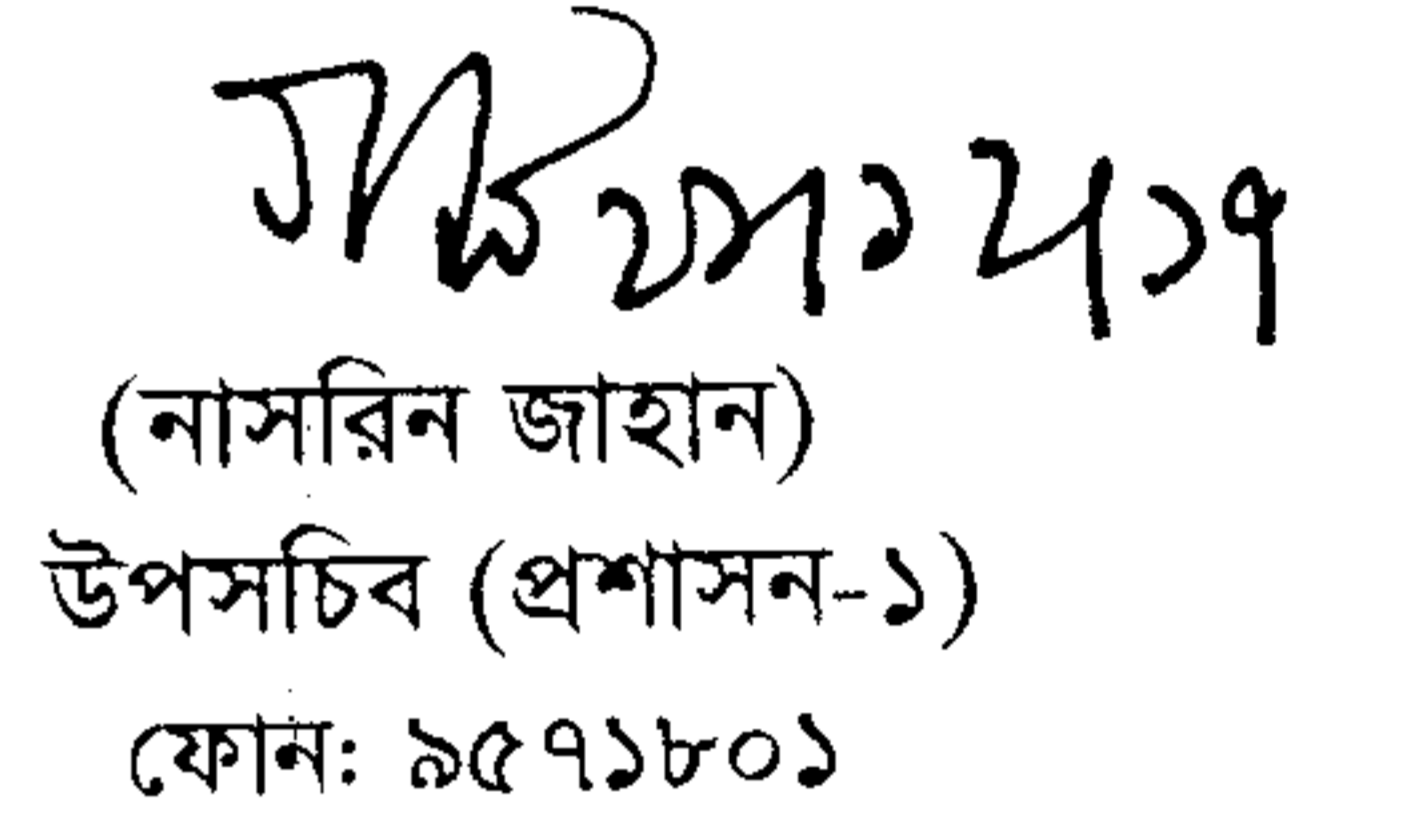 (নাসরিন জাহান)
উপসচিব (প্রশাসন-১)
ফোন: ৯৫৭১৮০১